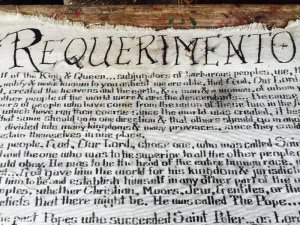 REQUERIMENTO
lf of the King & Queen... subjugators of barbarian peoples, we, th
notify & make known to you as best we are able, that God, Our Lord
created the heavens and the earth, & a man & a woman, of whom
other people of the world were & are the descendants... Because
people who have come from the union of these two in the
which have run their course since the world was created, it
that some should go in one direction & that others should go in
divided into many kingdoms & many provinces
themselves in one
people, God, Our Lord, chose one, who was called S
and the one who was to be superior to all the other people
obey. He was to be the head of the entire human race,
God gave him the world for his kingdom & jurisdic
him to be and establish himself in any other part of the
peoples, whether Christian, Moors, Jew, Gentiles, or th
beliefs that there might be. He was called The Pope...
past Popes who succeeded Saint Peter, as Lord